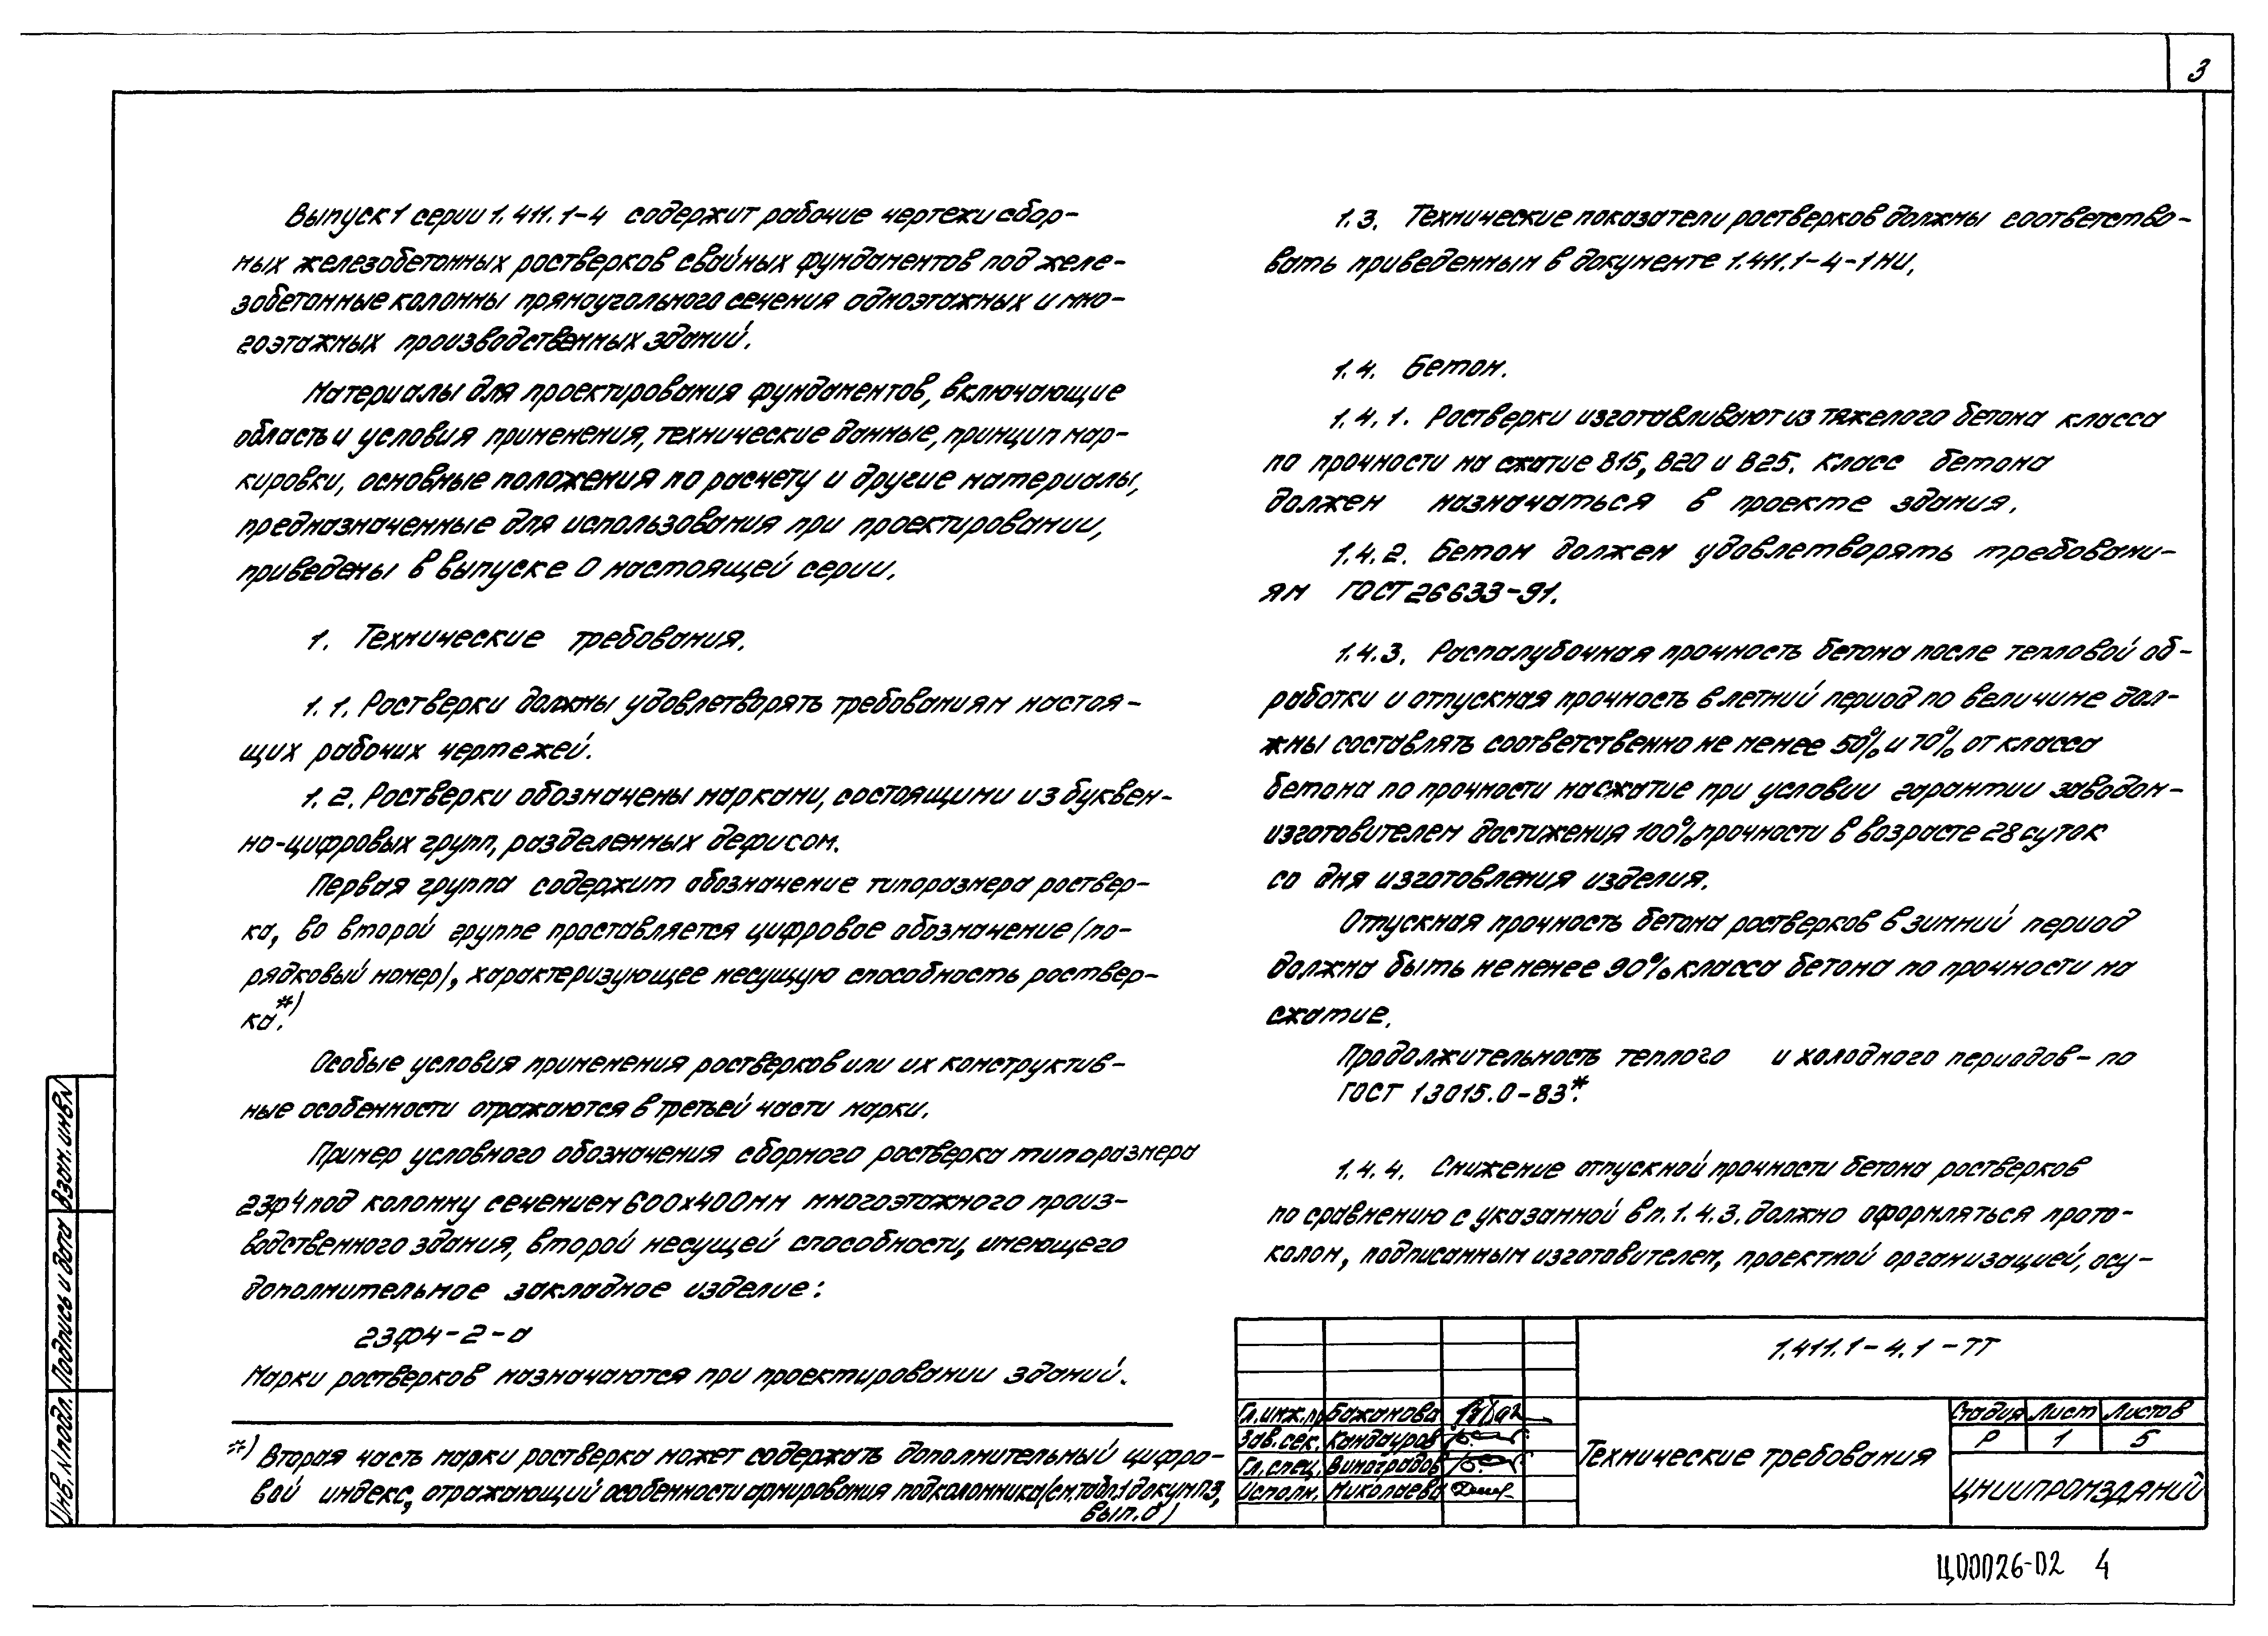 3
Выпуск 1 серии 1.411.1-4 содержит рабочие чертежи сбор-
ных железобетонных ростверков свайных фундаментов под желе-
зобетонные колонны прямоугольного сечения одноэтажных и мно-
гоэтажных производственных зданий.
Материалы для проектирования фундаментов, включающие
область и условия применения, технические данные, принцип мар-
кировки, основные положения по расчету и другие материалы,
предназначенные для использования при проектировании,
приведены в выпуске 0 настоящей серии.
1. Технические требования.
1.1. Ростверки должны удовлетворять требованиям настоя-
щих рабочих чертежей.
1.2. Ростверки обозначены марками, состоящими из буквен-
но-цифровых групп, разделенных дефисом.
Первая группа содержит обозначение типоразмера роствер-
ка, во второй группе проставляется цифровое обозначение (по-
рядковый номер), характеризующее несущую способность роствер-
ка.*)
Особые условия применения ростверков или их конструктив-
ные особенности отражаются в третьей части марки.
Пример условного обозначения сборного ростверка типоразмера
23ф4 под колонну сечением 600х400мм многоэтажного произ-
водственного здания, второй несущей способности, имеющего
дополнительное закладное изделие:
23ф4-2-а
Марки ростверков назначаются при проектировании зданий.
*) Вторая часть марки ростверка может содержать дополнительный цифро-
вой индекс, отражающий особенности армирования подколонника (см. табл. 1 докум. ПЗ,
вып. 0)
1.3. Технические показатели ростверков должны соответство-
вать приведенным в документе 1.411.1-4-1НИ.
1.4. Бетон.
1.4.1. Ростверки изготавливают из тяжелого бетона класса
по прочности на сжатие В15, В20 и В25. Класс бетона
должен назначаться в проекте здания.
1.4.2. Бетон должен удовлетворять требовани-
ям ГОСТ 26633-91.
1.4.3. Распалубочная прочность бетона после тепловой об-
работки и отпускная прочность в летний период по величине дол-
жны составлять соответственно не менее 50% и 70% от класса
бетона по прочности на сжатие при условии гарантии заводом-
изготовителем достижения 100% прочности в возрасте 28 суток
со дня изготовления изделия.
Отпускная прочность бетона ростверков в зимний период
должна быть не менее 90% класса бетона по прочности на
сжатие.
Продолжительность теплого и холодного периодов - по
ГОСТ 13015.0-83*.
1.4.4. Снижение отпускной прочности бетона ростверков
по сравнению с указанной в п. 1.4.3. должно оформляться прото-
колом, подписанным изготовителем, проектной организацией, осу-
1.411.1-4.1 -ТТ
Гл.инж.пр Бажанова
Зав.сек. Кандауров
Гл.спец. Виноградов
Исполн. Николаева
Технические требования
Стадия Лист Листов
Р 1 5
ЦНИИПРОМЗДАНИЙ
Инв.№подл. Подпись и дата Взам.инв№
Ц00026-02 4